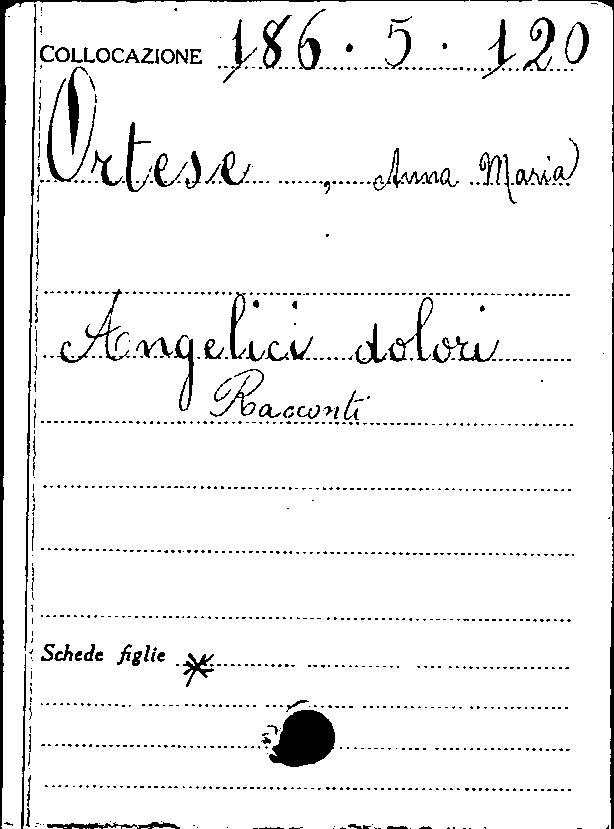 COLLOCAZIONE 186.5.120
Ortese, Anna Maria
Angelici dolori
Racconti
Schede figlie *